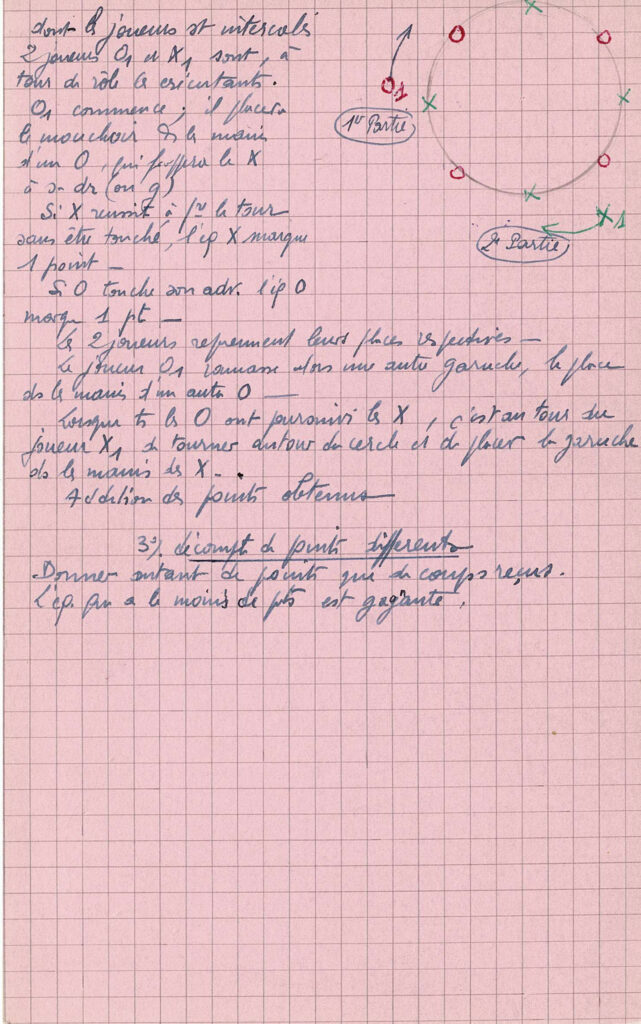 dont les joueurs st intercalés
2 joueurs O1 et X1 sont, à
tour de rôle les exécutants.
O1 commence ; il placera
le mouchoir ds la main
d'un O, qui frappera le X
à sa dr (ou g)
Si X réussit à f re le tour
sans être touché, l'éq X marque
1 point —
Si O touche son adv. l'éq O
marque 1 pt —
Les 2 joueurs reprennent leurs places respectives —
Le joueur O1 ramasse alors une autre garuche, la place
ds les mains d'un autre O —
Lorsque ts les O ont poursuivi les X, c'est au tour du
joueur X1 de tourner autour du cercle et de placer la garuche
ds les mains des X —
Addition des points obtenus —
3°/. décompte de points différent
Donner autant de points que de coups reçus.
L'éq. qui a le moins de pts est gagnante.
O1
1re Partie
X1
2e Partie